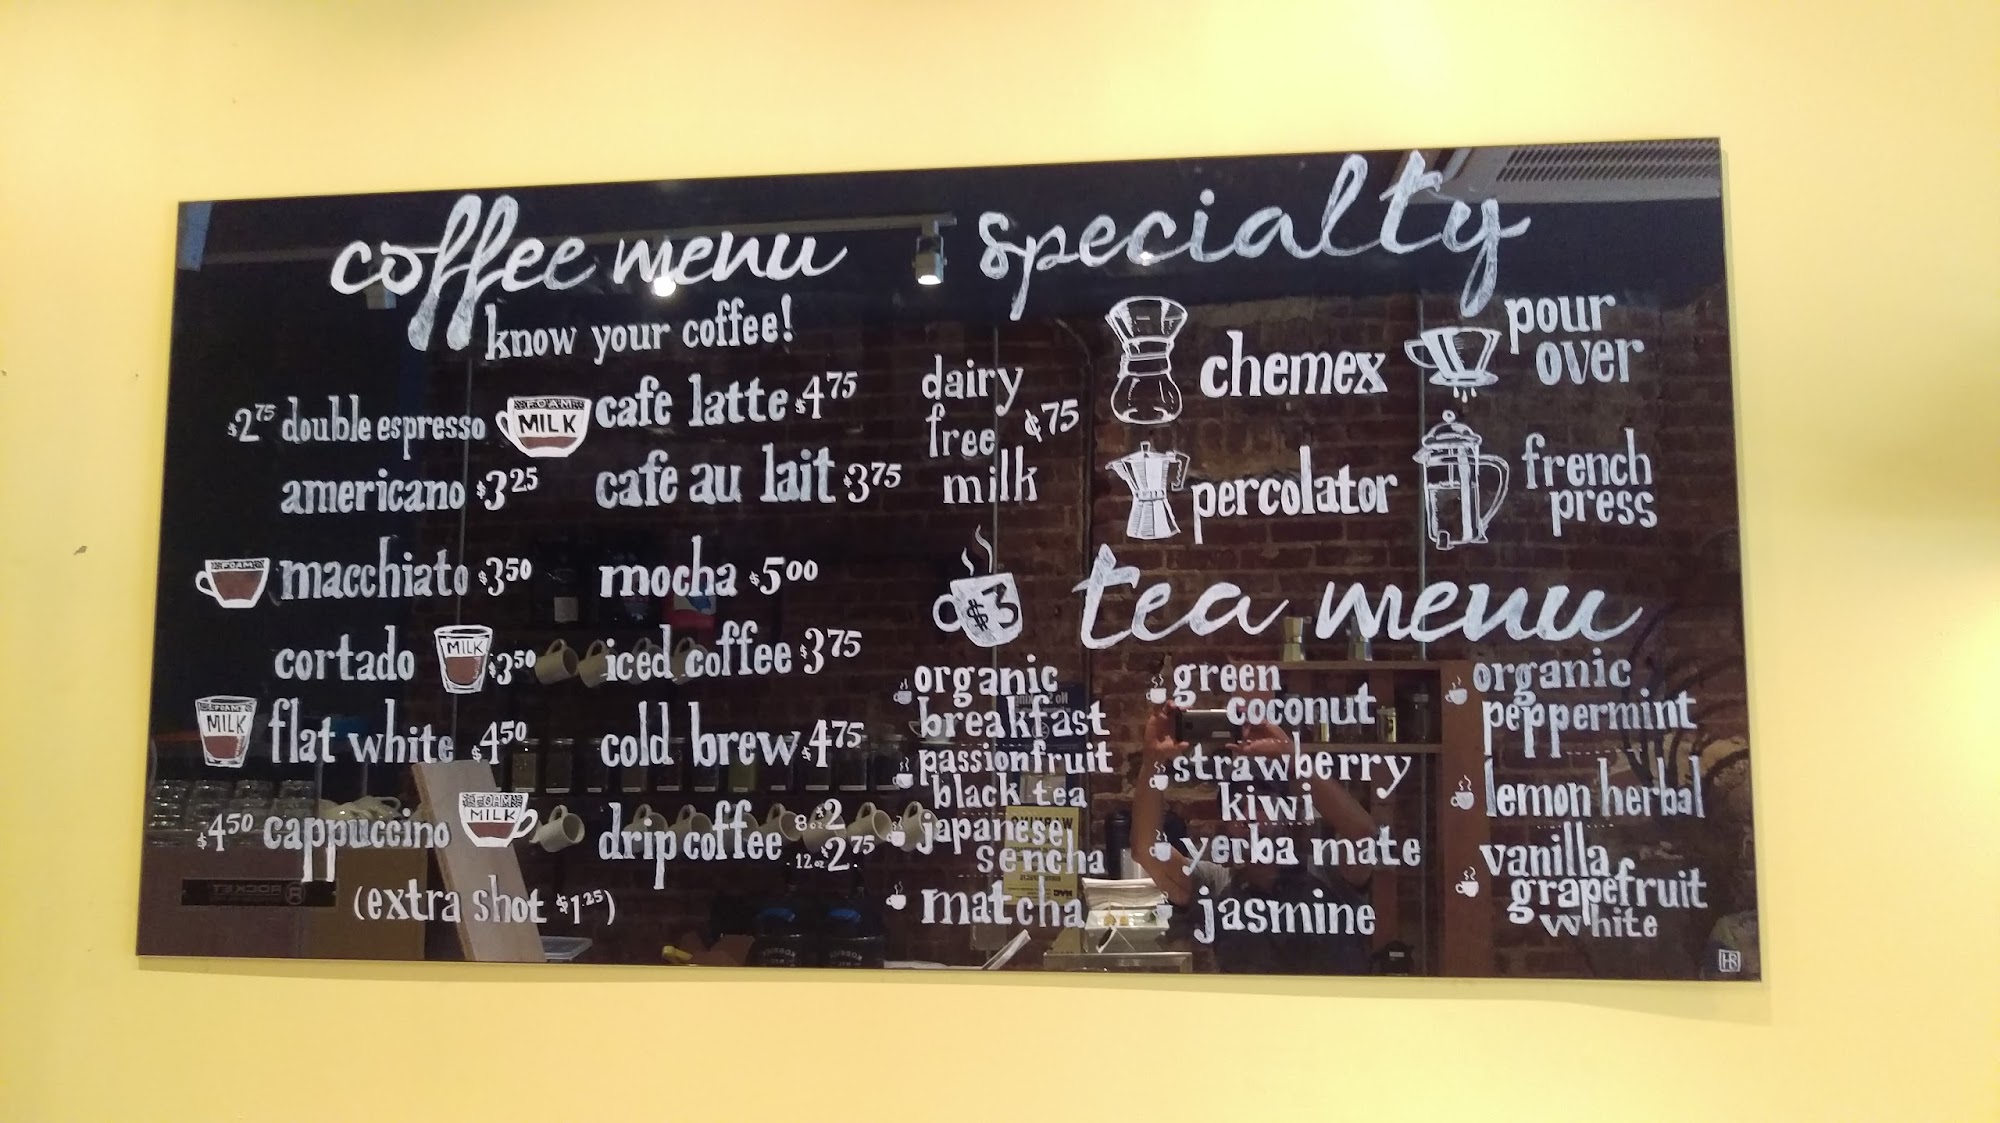 coffee menu
know your coffee!
$2.75 double espresso
FOAM
MILK
americano $3.25
FOAM
macchiato $3.50
cortado
MILK
$3.50
FOAM
MILK
flat white $4.50
$4.50 cappuccino
FOAM
MILK
(extra shot $1.25)
cafe latte $4.75
cafe au lait $3.75
mocha $5.00
iced coffee $3.75
cold brew $4.75
drip coffee 8oz $2
12oz $2.75
dairy
free ¢75
milk
specialty
chemex
pour
over
percolator
french
press
$3
tea menu
organic
breakfast
passionfruit
black tea
japanese
sencha
matcha
green
coconut
strawberry
kiwi
yerba mate
jasmine
organic
peppermint
lemon herbal
vanilla
grapefruit
white
HB